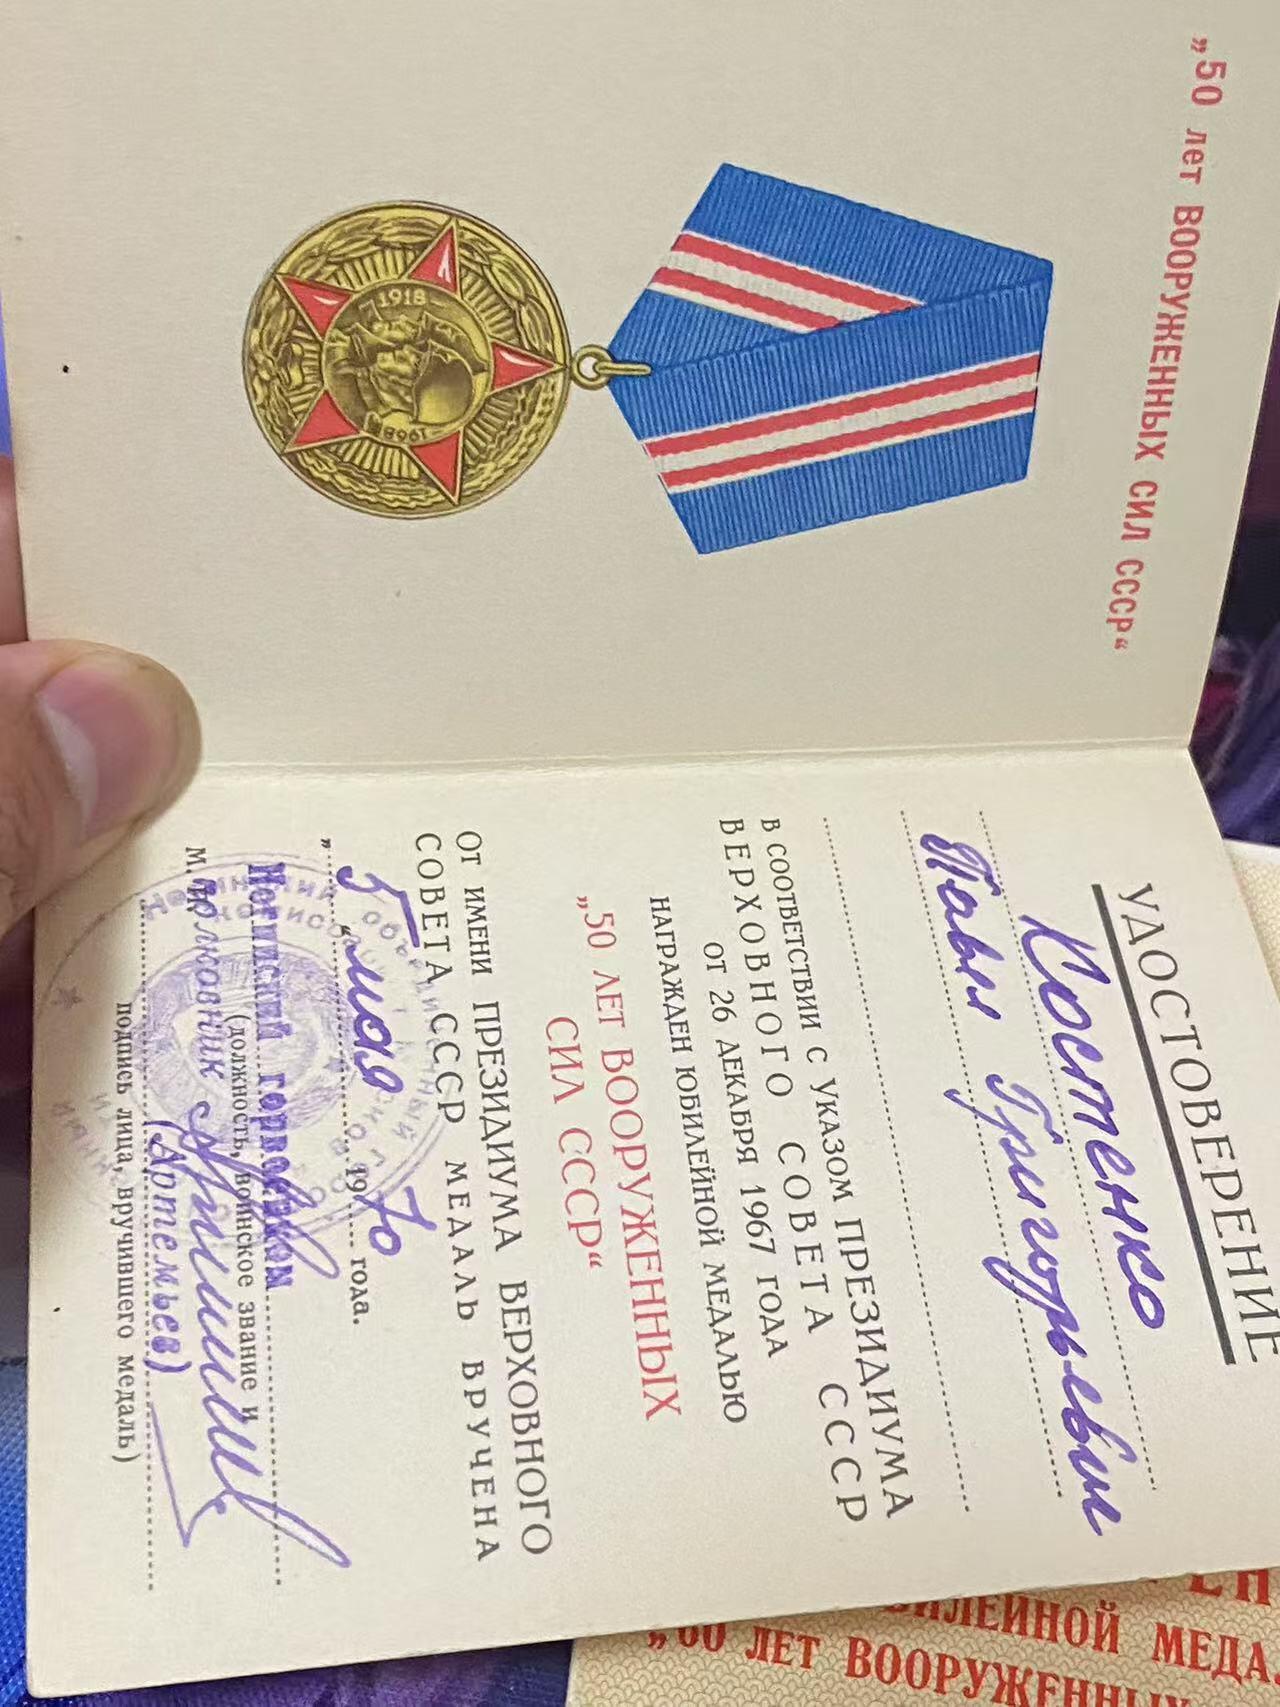 „50 лет ВООРУЖЕННЫХ СИЛ СССР“
1918
1968
УДОСТОВЕРЕНИЕ
Костенко
Павел Григорьевич
В СООТВЕТСТВИИ С УКАЗОМ ПРЕЗИДИУМА
ВЕРХОВНОГО СОВЕТА СССР
ОТ 26 ДЕКАБРЯ 1967 ГОДА
НАГРАЖДЕН ЮБИЛЕЙНОЙ МЕДАЛЬЮ
„50 ЛЕТ ВООРУЖЕННЫХ
СИЛ СССР“
ОТ ИМЕНИ ПРЕЗИДИУМА ВЕРХОВНОГО
СОВЕТА СССР МЕДАЛЬ ВРУЧЕНА
„5“ мая 1970 года.
горвоенком
(должность, воинское звание и
М. П.
полковник
(Артемьев)
подпись лица, вручившего медаль)
ЮБИЛЕЙНОЙ МЕДА
„60 ЛЕТ ВООРУЖЕННЫХ